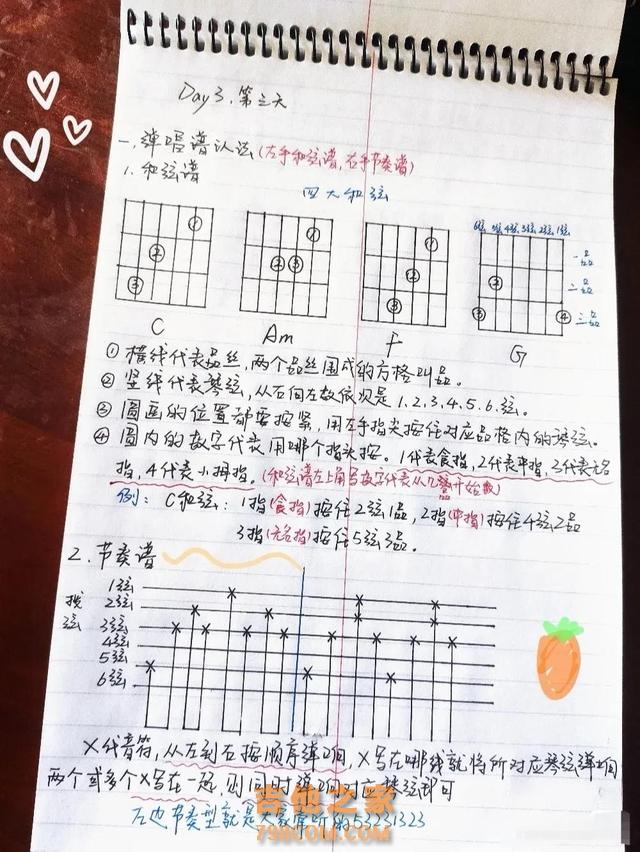 Day 3. 第三天
一. 弹唱谱认法(左手和弦谱,右手节奏谱)
1. 和弦谱
四大和弦
6弦 5弦 4弦 3弦 2弦 1弦
① ② ③
① ② ③
① ② ③
② ③ ④
一品
二品
三品
C Am F G
① 横线代表品丝,两个品丝围成的方格叫品。
② 竖线代表琴弦,从右向左数依次是1.2.3.4.5.6.弦。
③ 圆画的位置都要按紧,用左手指尖按住对应品格内的琴弦。
④ 圆内的数字代表用哪个指头按。1代表食指,2代表中指,3代表无名
指,4代表小拇指。(和弦谱左上角写数字代表从几品开始数)
例: C和弦: 1指(食指)按住2弦1品, 2指(中指)按住4弦2品
3指(无名指)按住5弦3品。
2. 节奏谱
拨弦
1弦
2弦
3弦
4弦
5弦
6弦
X代音符,从左到右按顺序弹响,X写在哪线就将所对应琴弦弹响
两个或多个X写在一起,则同时弹响对应琴弦即可
左边节奏型就是大家常听的53231323
吉他之家
798COM.COM